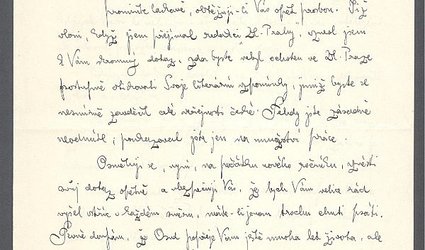 promiňte laskavě, obtěžuji-li Vás opět prosbou. Již
vloni, když jsem přejímal redakci „Zl. Prahy", vznesl jsem
k Vám skromný dotaz, zda byste nebyl ochoten ve Zl. Praze
postupně otiskovati Svoje literární vzpomínky, jimiž byste se
nesmírně zavděčil celé veřejnosti české. Tehdy jste zásadně
neodmítl, poukazoval jste jen na množství práce.
Osměluji se, nyní, na počátku nového ročníku, vznésti
svůj dotaz opětně a ubezpečuji Vás, že bych Vám velice rád
vyšel vstříc v každém směru, máte-li jenom trochu chuti psáti.
Pevně doufám, že Osud popřeje Vám ještě mnoha let života, ale